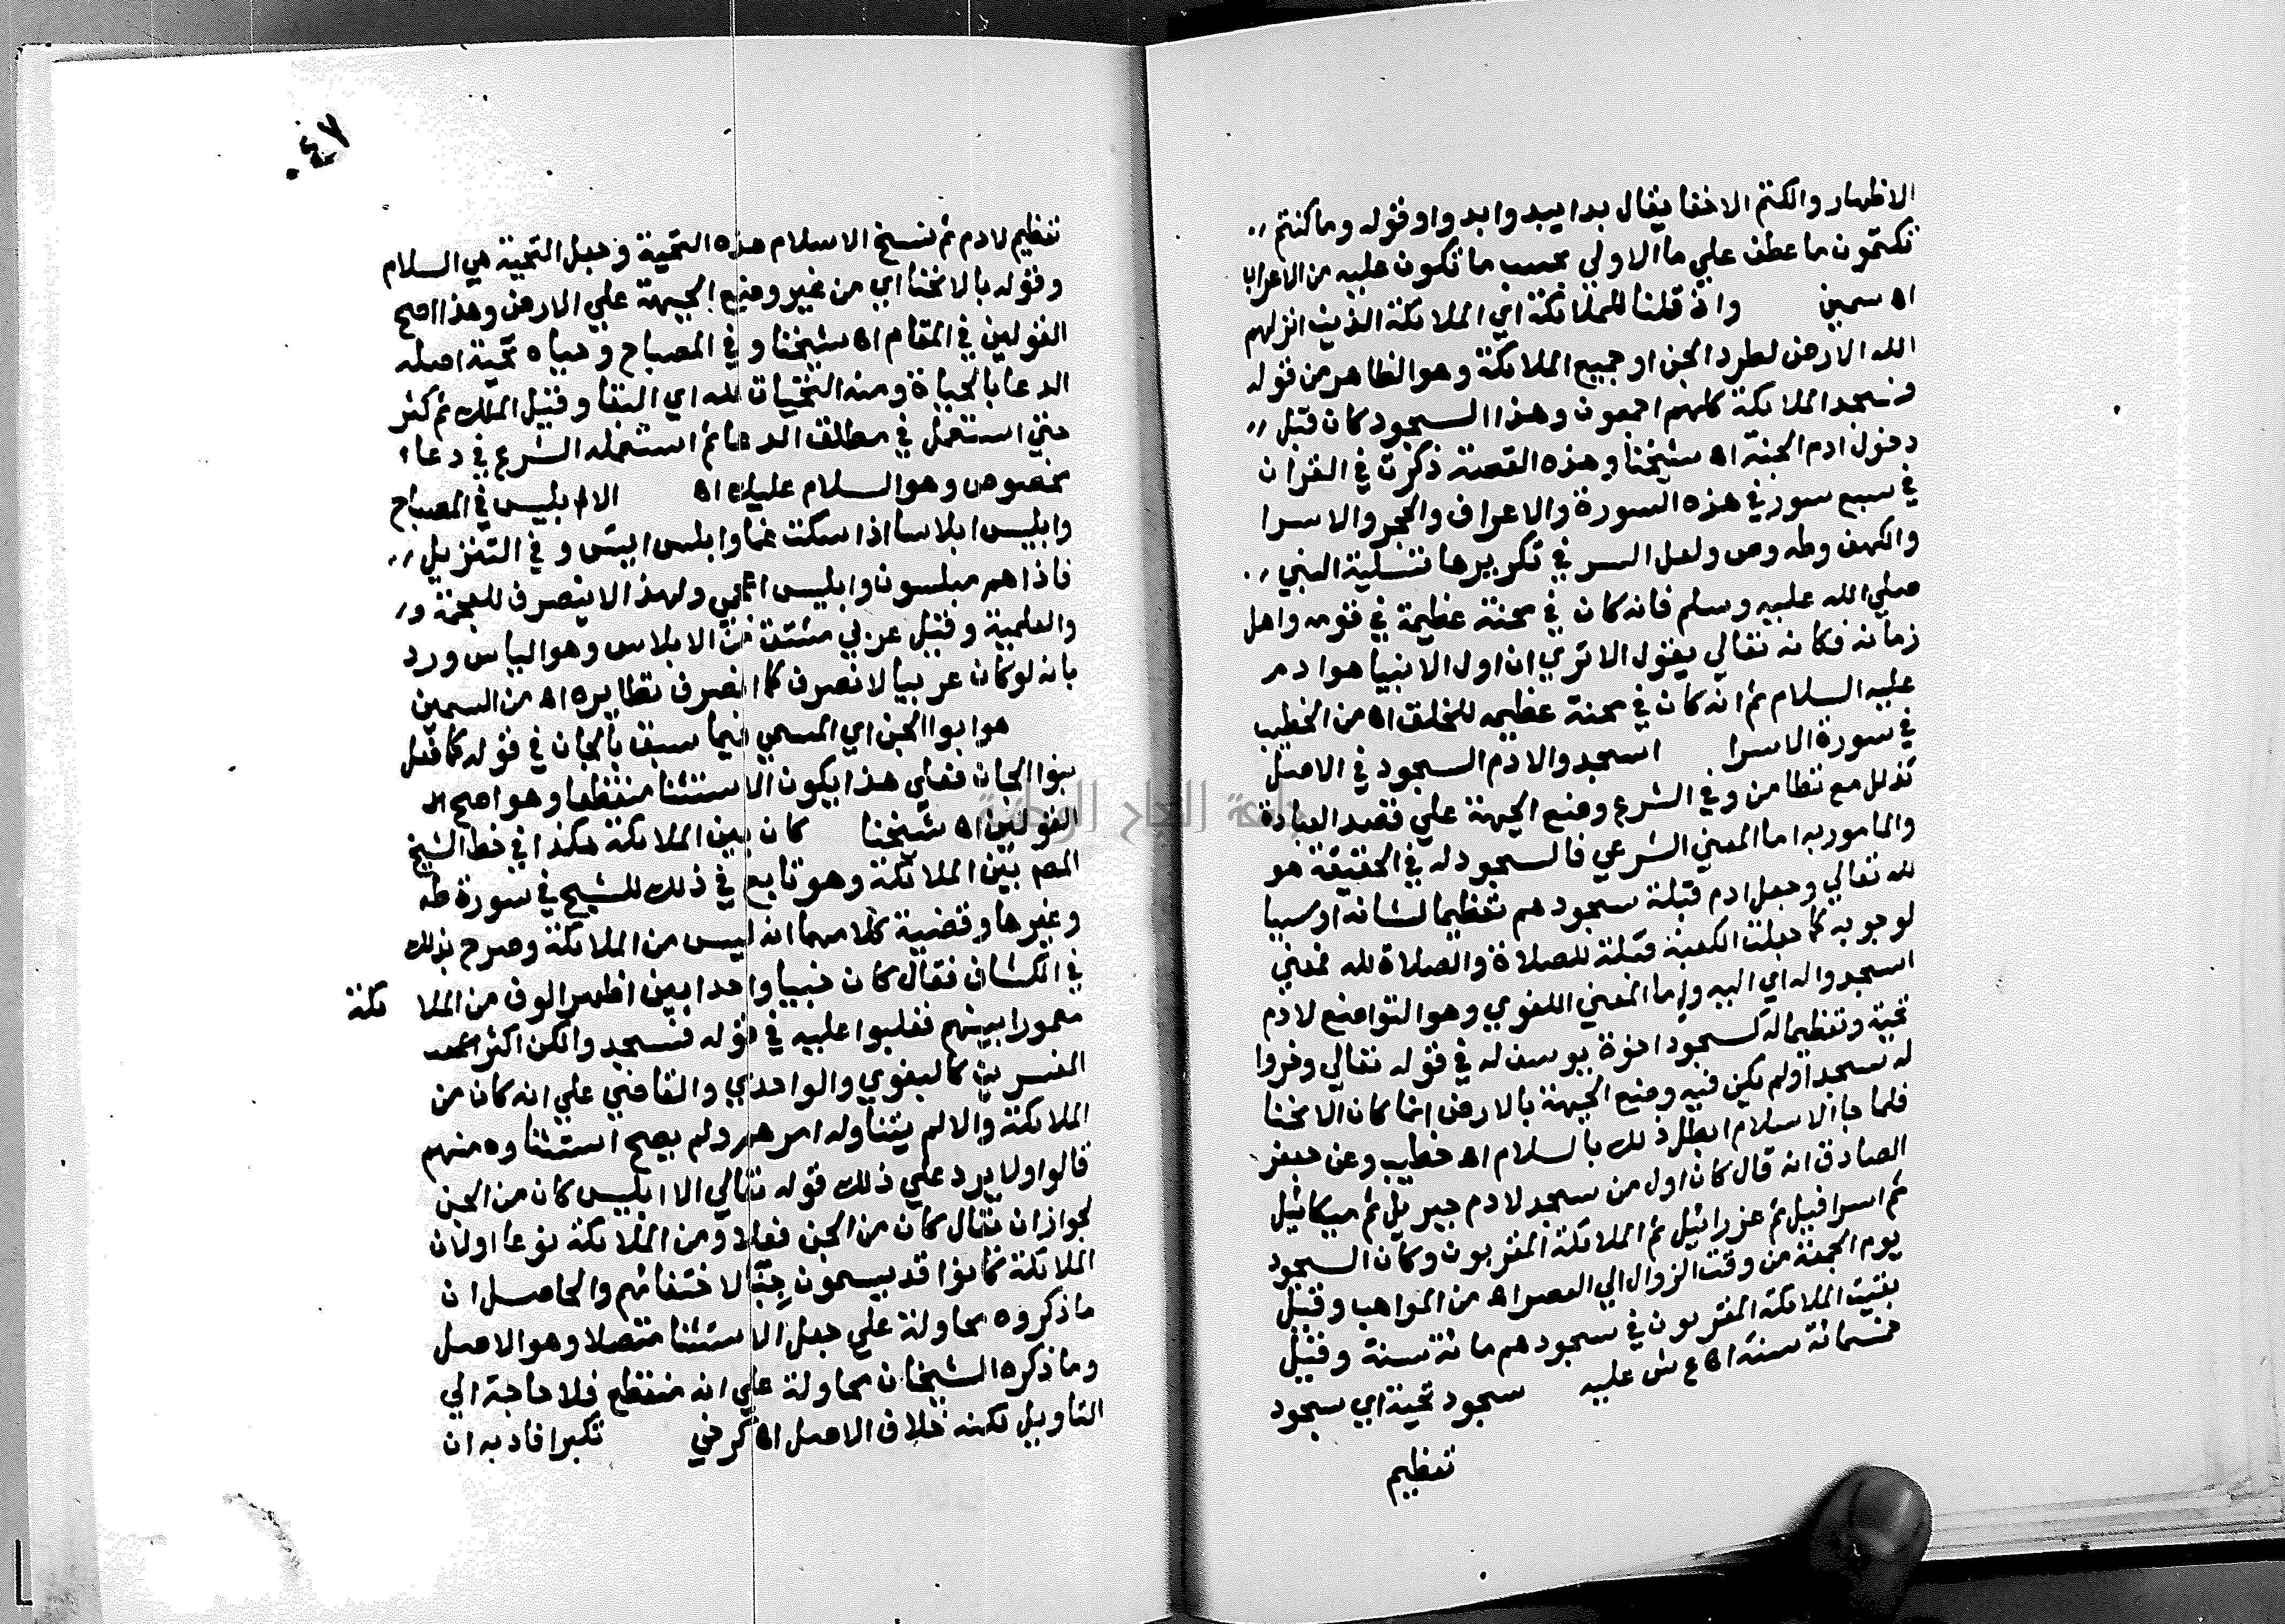 الاظهار والكتم الاخفا يقال بدا يبدو ابدوا وقوله وما كنتم
تكتمون ما عطف علي ما الاولي بحسب ما تكون عليه من الاعراب
اه سمين واذ قلنا للملائكة اي الملائكة الذين انزلهم
الله الارض لطرد الجن او جميع الملائكة وهو الظاهر من قوله
فسجد الملائكة كلهم اجمعون وهذا السجود كان قبل
دخول ادم الجنة اه شيخنا وهذه القصة ذكرت في القران
في سبع سور في هذه السورة والاعراف والحجر والاسرا
والكهف وطه وص ولعل السر في تكريرها تسلية النبي
صلي الله عليه وسلم فانه كان في محنة عظيمة في قومه واهل
زمانه فكانه تعالي يقول الا تري ان اول الانبيا هو ادم
عليه السلام ثم انه كان في محنة عظيمه للخلق اه من الخطيب
في سورة الاسرا اسجدوا لادم السجود في الاصل
تذلل مع تطامن وفي الشرع وضع الجبهة علي قصد العبادة
والمامور به اما المعني الشرعي فالسجود له في الحقيقة هو
لله تعالي وجعل ادم قبلة سجودهم تعظيما لشانه او سببا
لوجوبه كما جعلت الكعبة قبلة للصلاة والصلاة لله فمعني
اسجدوا له اي اليه واما المعني اللغوي وهو التواضع لادم
تحية وتعظيما له كسجود اخوة يوسف له في قوله تعالي وخروا
له سجدا ولم يكن فيه وضع الجبهة بالارض انما كان الانحنا
فلما جا الاسلام ابطل ذلك بالسلام اه خطيب وعن جعفر
الصادق انه قال كان اول من سجد لادم جبريل ثم ميكائيل
ثم اسرافيل ثم عزرائيل ثم الملائكة المقربون وكان السجود
يوم الجمعة من وقت الزوال الي العصر اه من المواهب وقيل
بقيت الملائكة المقربون في سجودهم مائة سنة وقيل
خمسمائة سنة اه ع ش عليه سجود تحية اي سجود
تعظيم
٤٧
تعظيم لادم ثم نسخ الاسلام هذه التحية وجعل التحية هي السلام
وقوله بالانحنا اي من غير وضع الجبهة علي الارض وهذا اصح
القولين في المقام اه شيخنا وفي المصباح وحياه تحية اصله
الدعا بالحياة ومنه التحيات لله اي البقا وقيل الملك ثم كثر
حتي استعمل في مطلق الدعا ثم استعمله الشرع في دعاء
مخصوص وهو السلام عليك اه الا ابليس في المصباح
وابليس ابلاسا اذا سكت غما وابلس ايس وفي التنزيل
فاذا هم مبلسون وابليس اعجمي ولهذا لا ينصرف للعجمة و
والعلمية وقيل عربي مشتق من الابلاس وهو الياس ورد
بانه لو كان عربيا لانصرف كما انصرف نظايره اه من السمين
هو ابوا الجن اي المسمي فيما سبق بالجان في قوله كما فعل
بنوا الجان فعلي هذا يكون الاستثنا منقطعا وهو اصح
القولين اه شيخنا كان بين الملائكة هكذا في خط الشيخ
المص بين الملائكة وهو تابع في ذلك للشيخ في سورة طه
وغيرها وقضية كلامهما انه ليس من الملائكة وصرح بذلك
في الكشاف فقال كان جنيا واحدا بين اظهر الوف من الملا ئكة
مغمورا بينهم فغلبوا عليه في قوله فسجدوا لكن اكثر
المفسرين كالبغوي والواحدي والقاضي علي انه كان من
الملائكة والا لم يتناوله امرهم ولم يصح استثناوه منهم
قالوا ولا يرد علي ذلك قوله تعالي الا ابليس كان من الجن
لجواز ان يقال كان من الجن فعلا ومن الملائكة نوعا او لان
الملائكة كانوا قد يسمون جنا لاختفائهم والحاصل ان
ما ذكروه محاولة علي جعل الاستثنا متصلا وهو الاصل
وما ذكره الشيخان محاولة علي انه منقطع فلا حاجة الي
التاويل لكنه خلاف الاصل اه كرخي تكبرا فاد به ان